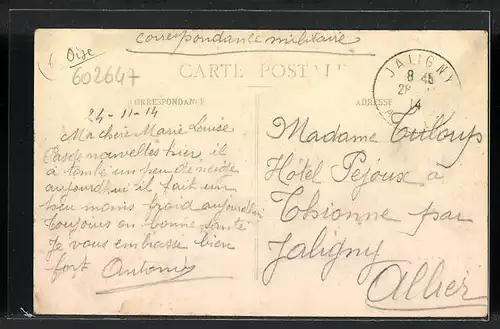 Oise
602647
correspondance militaire
CARTE POSTALE
CORRESPONDANCE
ADRESSE
JALIGNY
8 45
28
14
24-11-14
Ma chère Marie Louise
Pas de nouvelles hier il
à tombé un peu de neige
aujourd'hui il fait un
peu moins froid aujourd'hui
toujours en bonne santé
Je vous embrasse bien
fort Antonin
Madame Tuloup
Hôtel Pejoux à
Thionne par
Jaligny
Allier